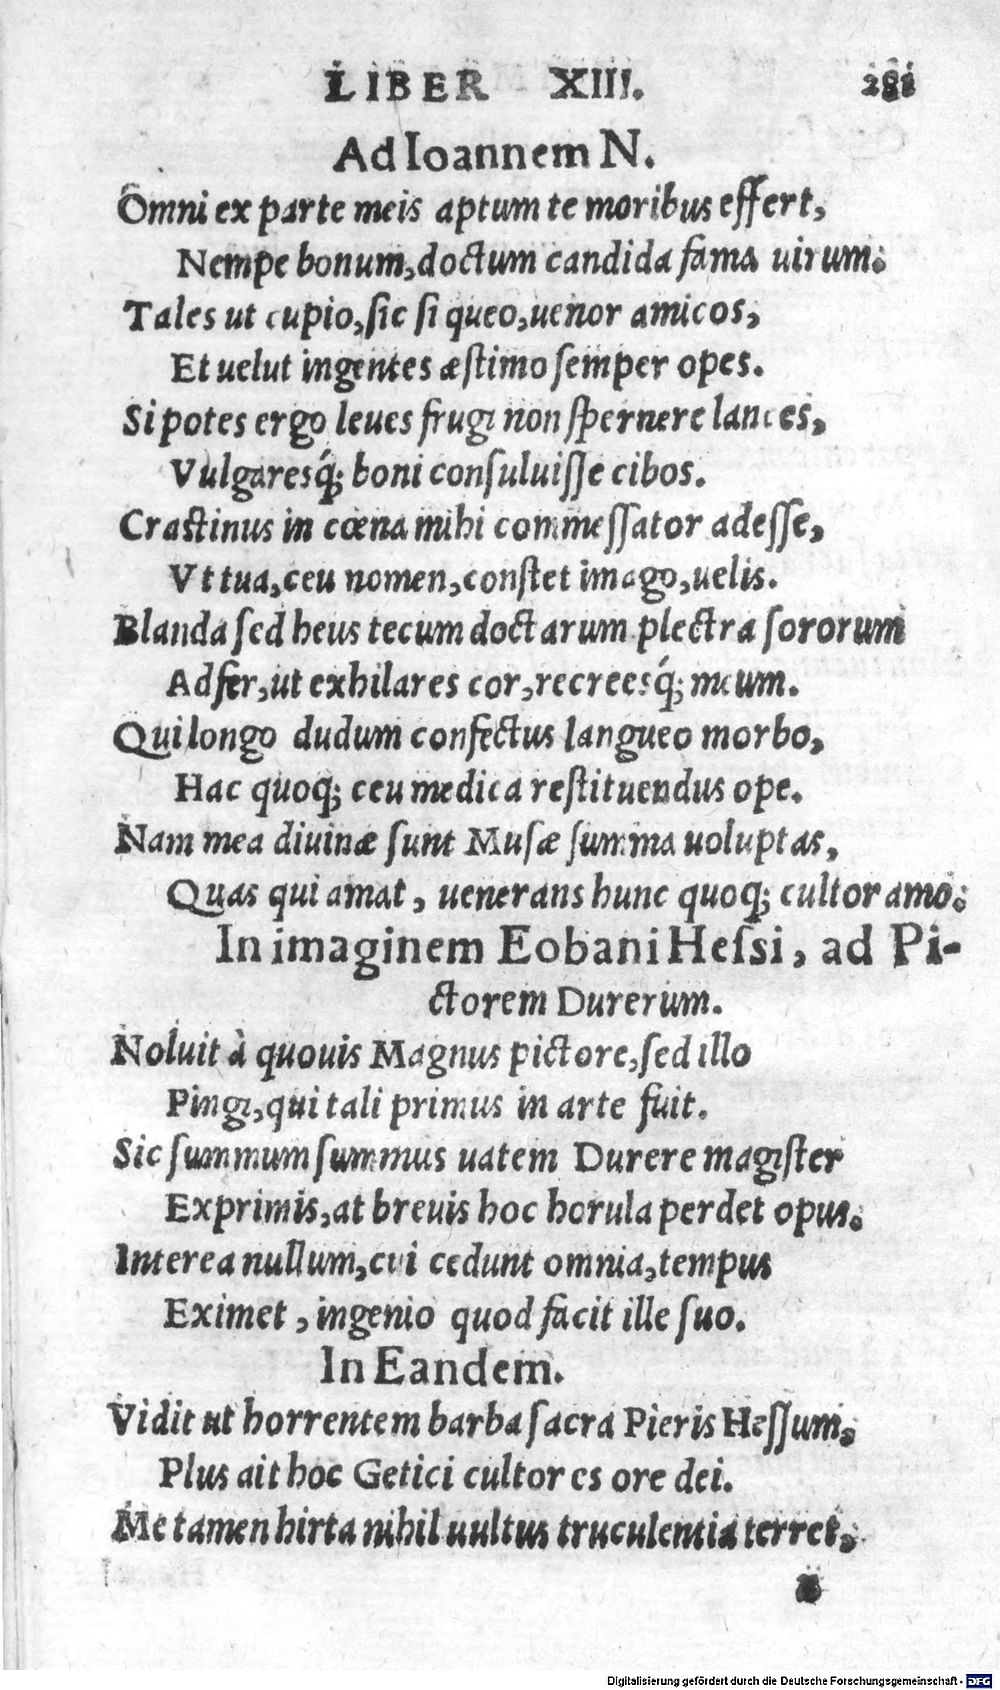 LIBER XIII. 281
Ad Ioannem N.
Omni ex parte meis aptum te moribus effert,
Nempe bonum, doctum candida fama uirum:
Tales ut cupio, ſic ſi queo, uenor amicos,
Et uelut ingentes æſtimo ſemper opes.
Si potes ergo leues frugi non ſpernere lances,
Vulgaresq́; boni conſuluiſſe cibos.
Craſtinus in cœna mihi commeſſator adeſſe,
Vt tua, ceu nomen, conſtet imago, uelis.
Blanda ſed heus tecum doctarum plectra ſororum
Adfer, ut exhilares cor, recreesq́; meum.
Qui longo dudum confectus langueo morbo,
Hac quoq; ceu medica reſtituendus ope.
Nam mea diuinæ ſunt Muſæ ſumma uoluptas,
Quas qui amat, uenerans hunc quoq; cultor amo:
In imaginem Eobani Heſsi, ad Pi-
ctorem Durerum.
Noluit à quouis Magnus pictore, ſed illo
Pingi, qui tali primus in arte fuit.
Sic ſummum ſummus uatem Durere magiſter
Exprimis, at breuis hoc horula perdet opus.
Interea nullum, cui cedunt omnia, tempus
Eximet, ingenio quod facit ille ſuo.
In Eandem.
Vidit ut horrentem barba ſacra Pieris Heſſum,
Plus ait hoc Getici cultor es ore dei.
Me tamen hirta nihil uultus truculentia terret,
Digitalisierung gefördert durch die Deutsche Forschungsgemeinschaft - DFG